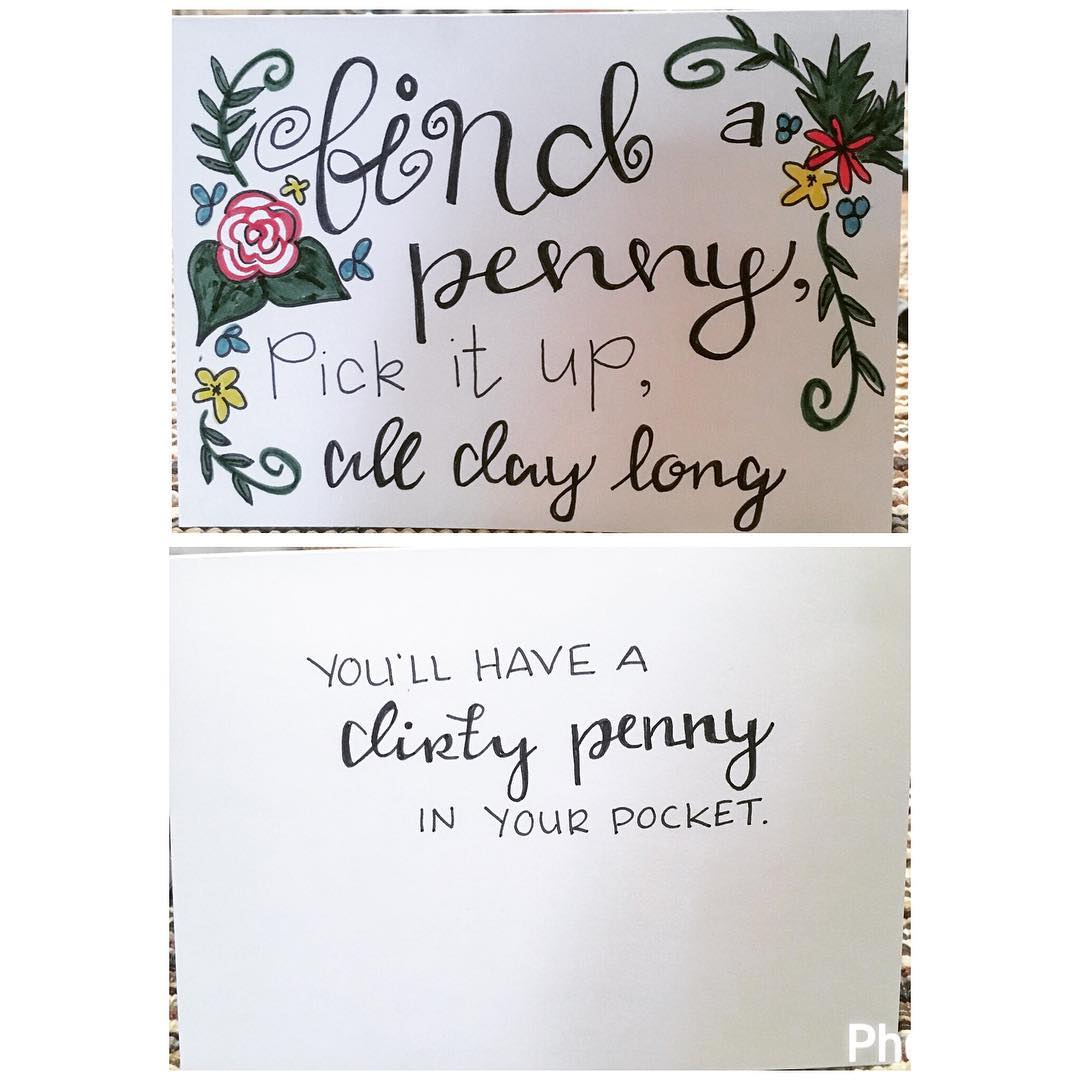 find a
penny,
Pick it up,
all day long
YOU'LL HAVE A
dirty penny
IN YOUR POCKET.